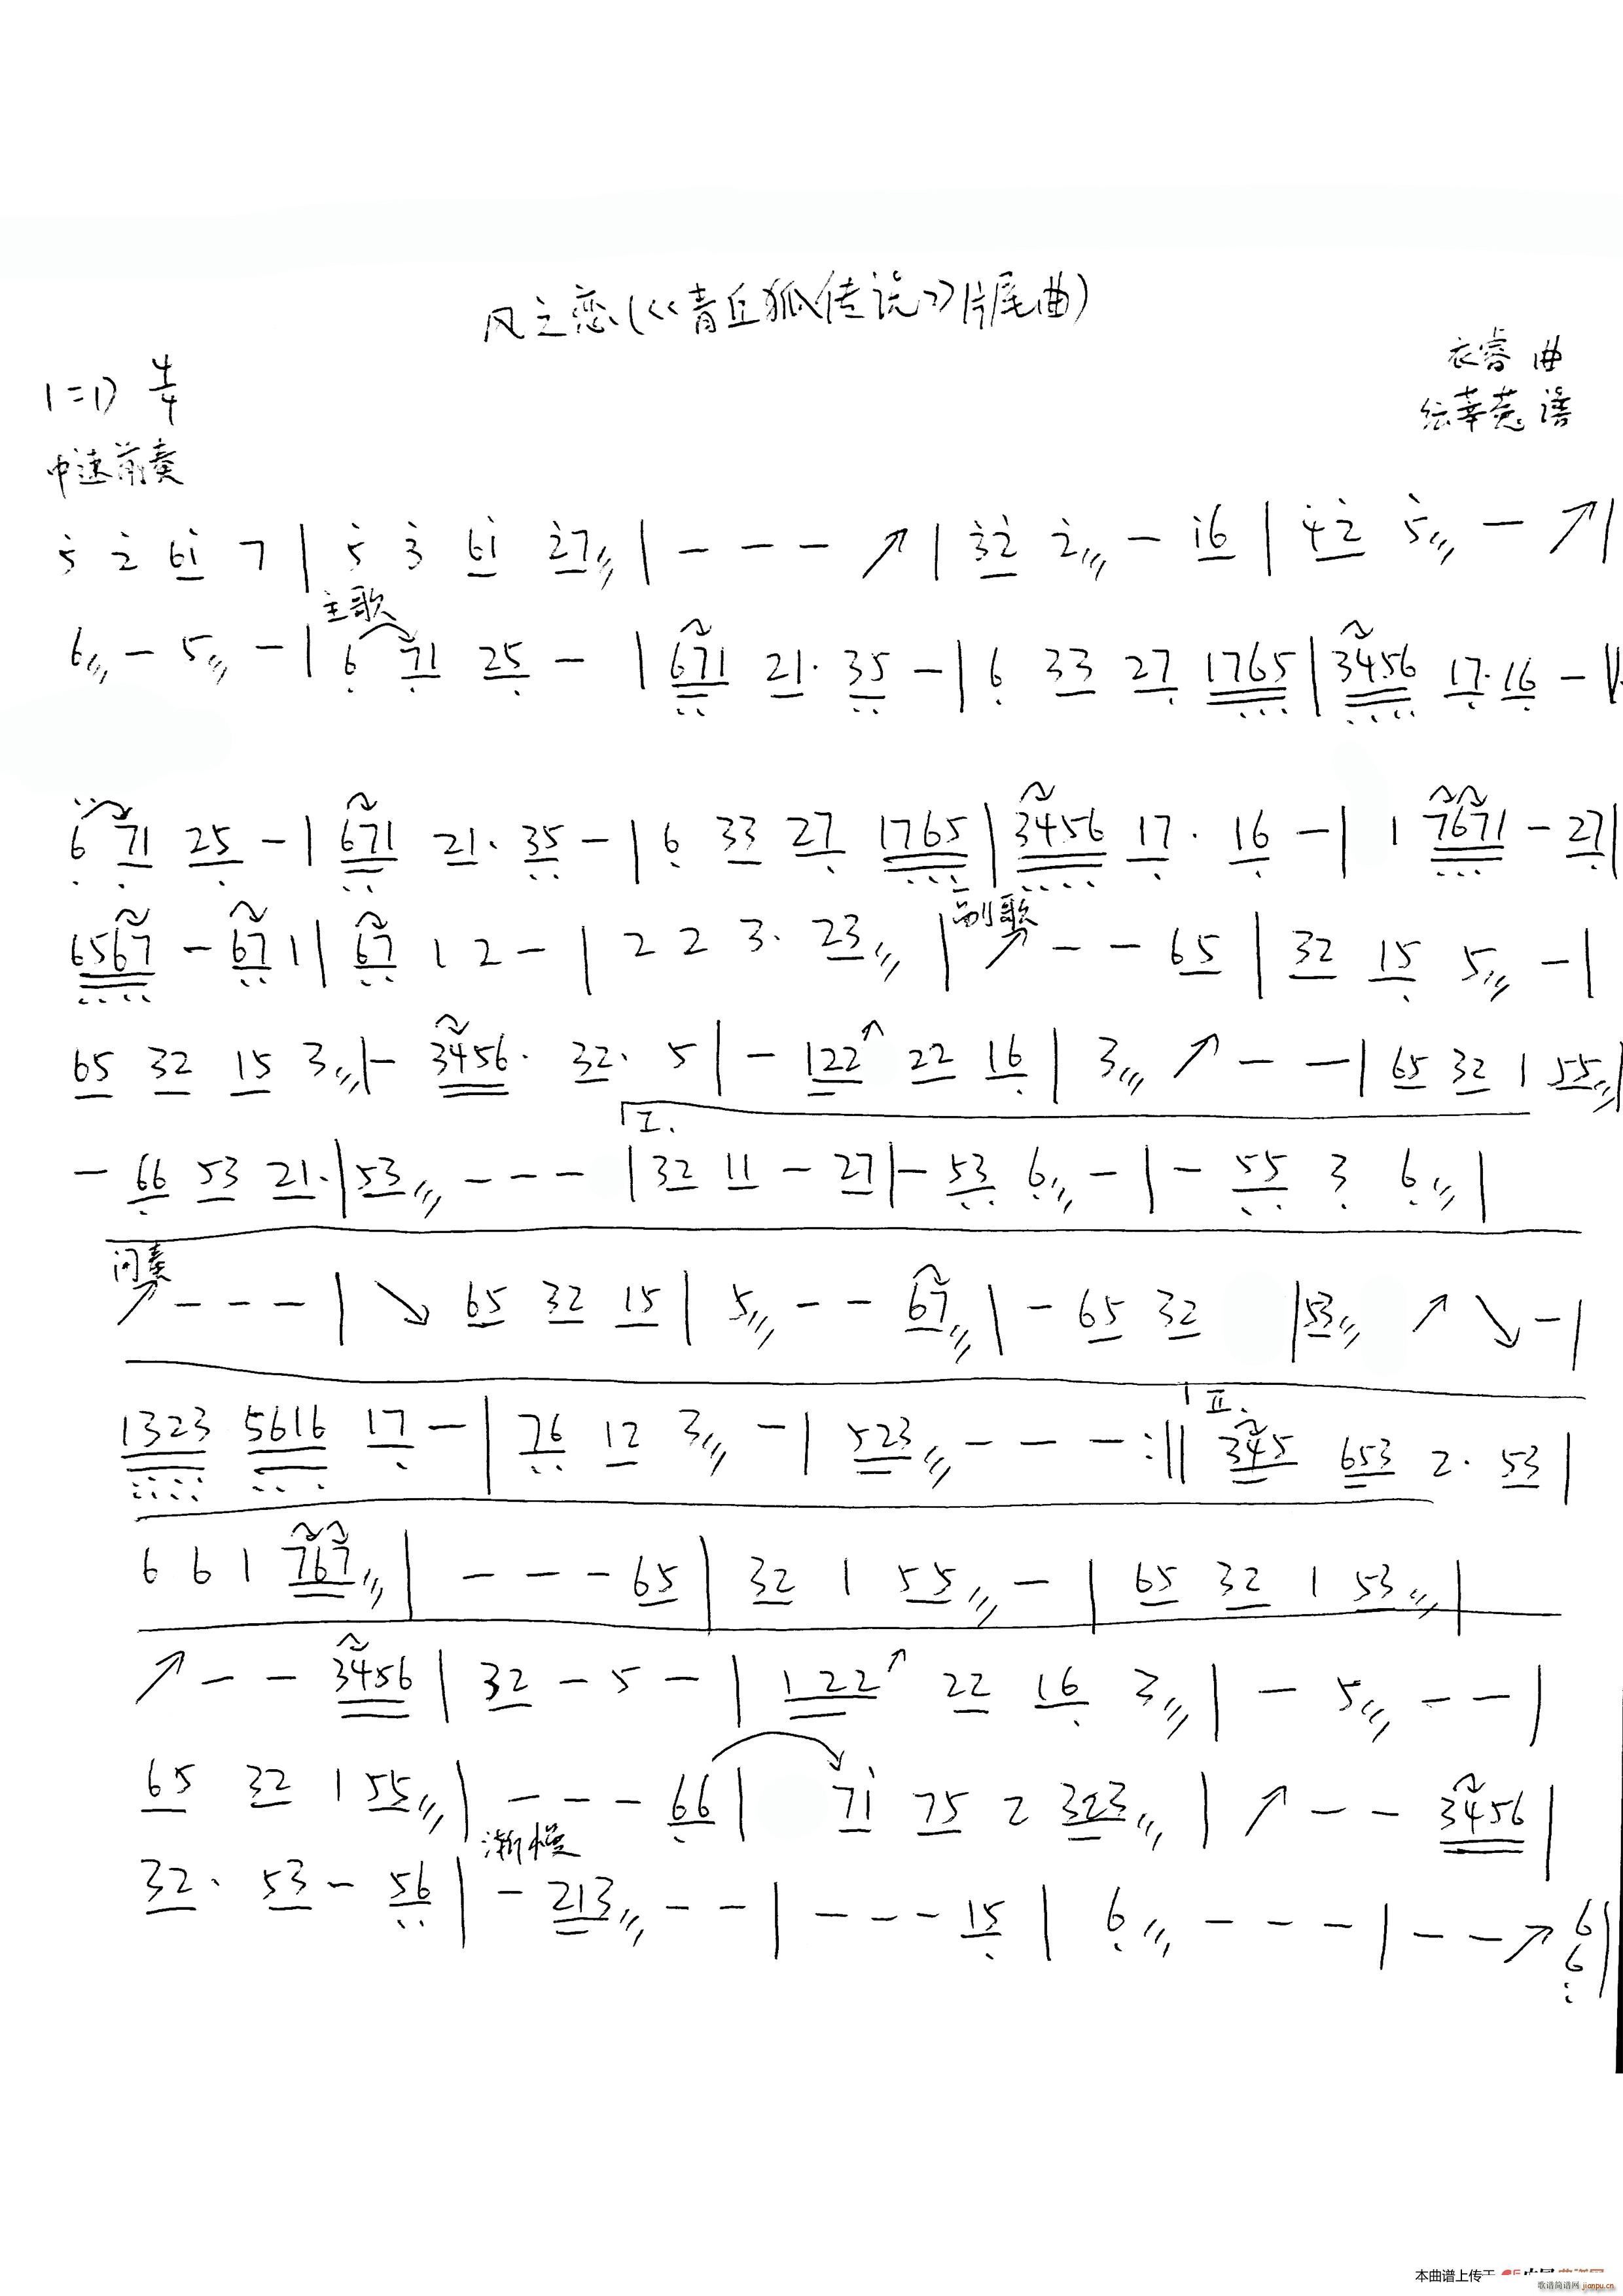 风之恋(<<青丘狐传说>>片尾曲)
衣睿 曲
1=D 4/4
谱
中速前奏
5̇ 2̇ 6i 7 | 5̇ 3̇ 6i 2̇7 | - - - ↗ | 3̇2̇ 2̇ - i6 | 4̇2̇ 5̇ - ↗ |
主歌
6 - 5 - | 6 71 25 - | 671 21· 35 - | 6 33 27 1765 | 3456 17·16 - ‖:
6 71 25 - | 671 21· 35 - | 6 33 27 1765 | 3456 17· 16 - | 1 7671 - 27 |
副歌
6567 - 67 1 | 67 1 2 - | 2 2 3· 23 | ↗ - - 65 | 32 15 5 - |
65 32 15 3 | - 3456· 32· 5 | - 122↗ 22 16 | 3 ↗ - - | 65 32 1 55 |
I.
- 66 53 21· | 53 - - - | 32 11 - 27 | - 53 6 - | - 55 3 6 |
间奏
↗ - - - | ↘ 65 32 15 | 5 - - 67 | - 65 32 | 53 ↗ ↘ - |
II.
1323 5616 17 - | 76 12 3 - | 523 - - - :‖ 345 653 2· 53 |
6 6 1 767 | - - - 65 | 32 1 55 - | 65 32 1 53 |
↗ - - 3456 | 32 - 5 - | 122↗ 22 16 3 | - 5 - - |
65 32 1 55 | - - - 66 | 7i 75 2 323 | ↗ - - 3456 |
渐慢
32· 53 - 56 | - 213 - - | - - - 15 | 6 - - - | - - ↗ 6 |
6
本曲谱上传于
歌谱简谱网 jianpu.cn